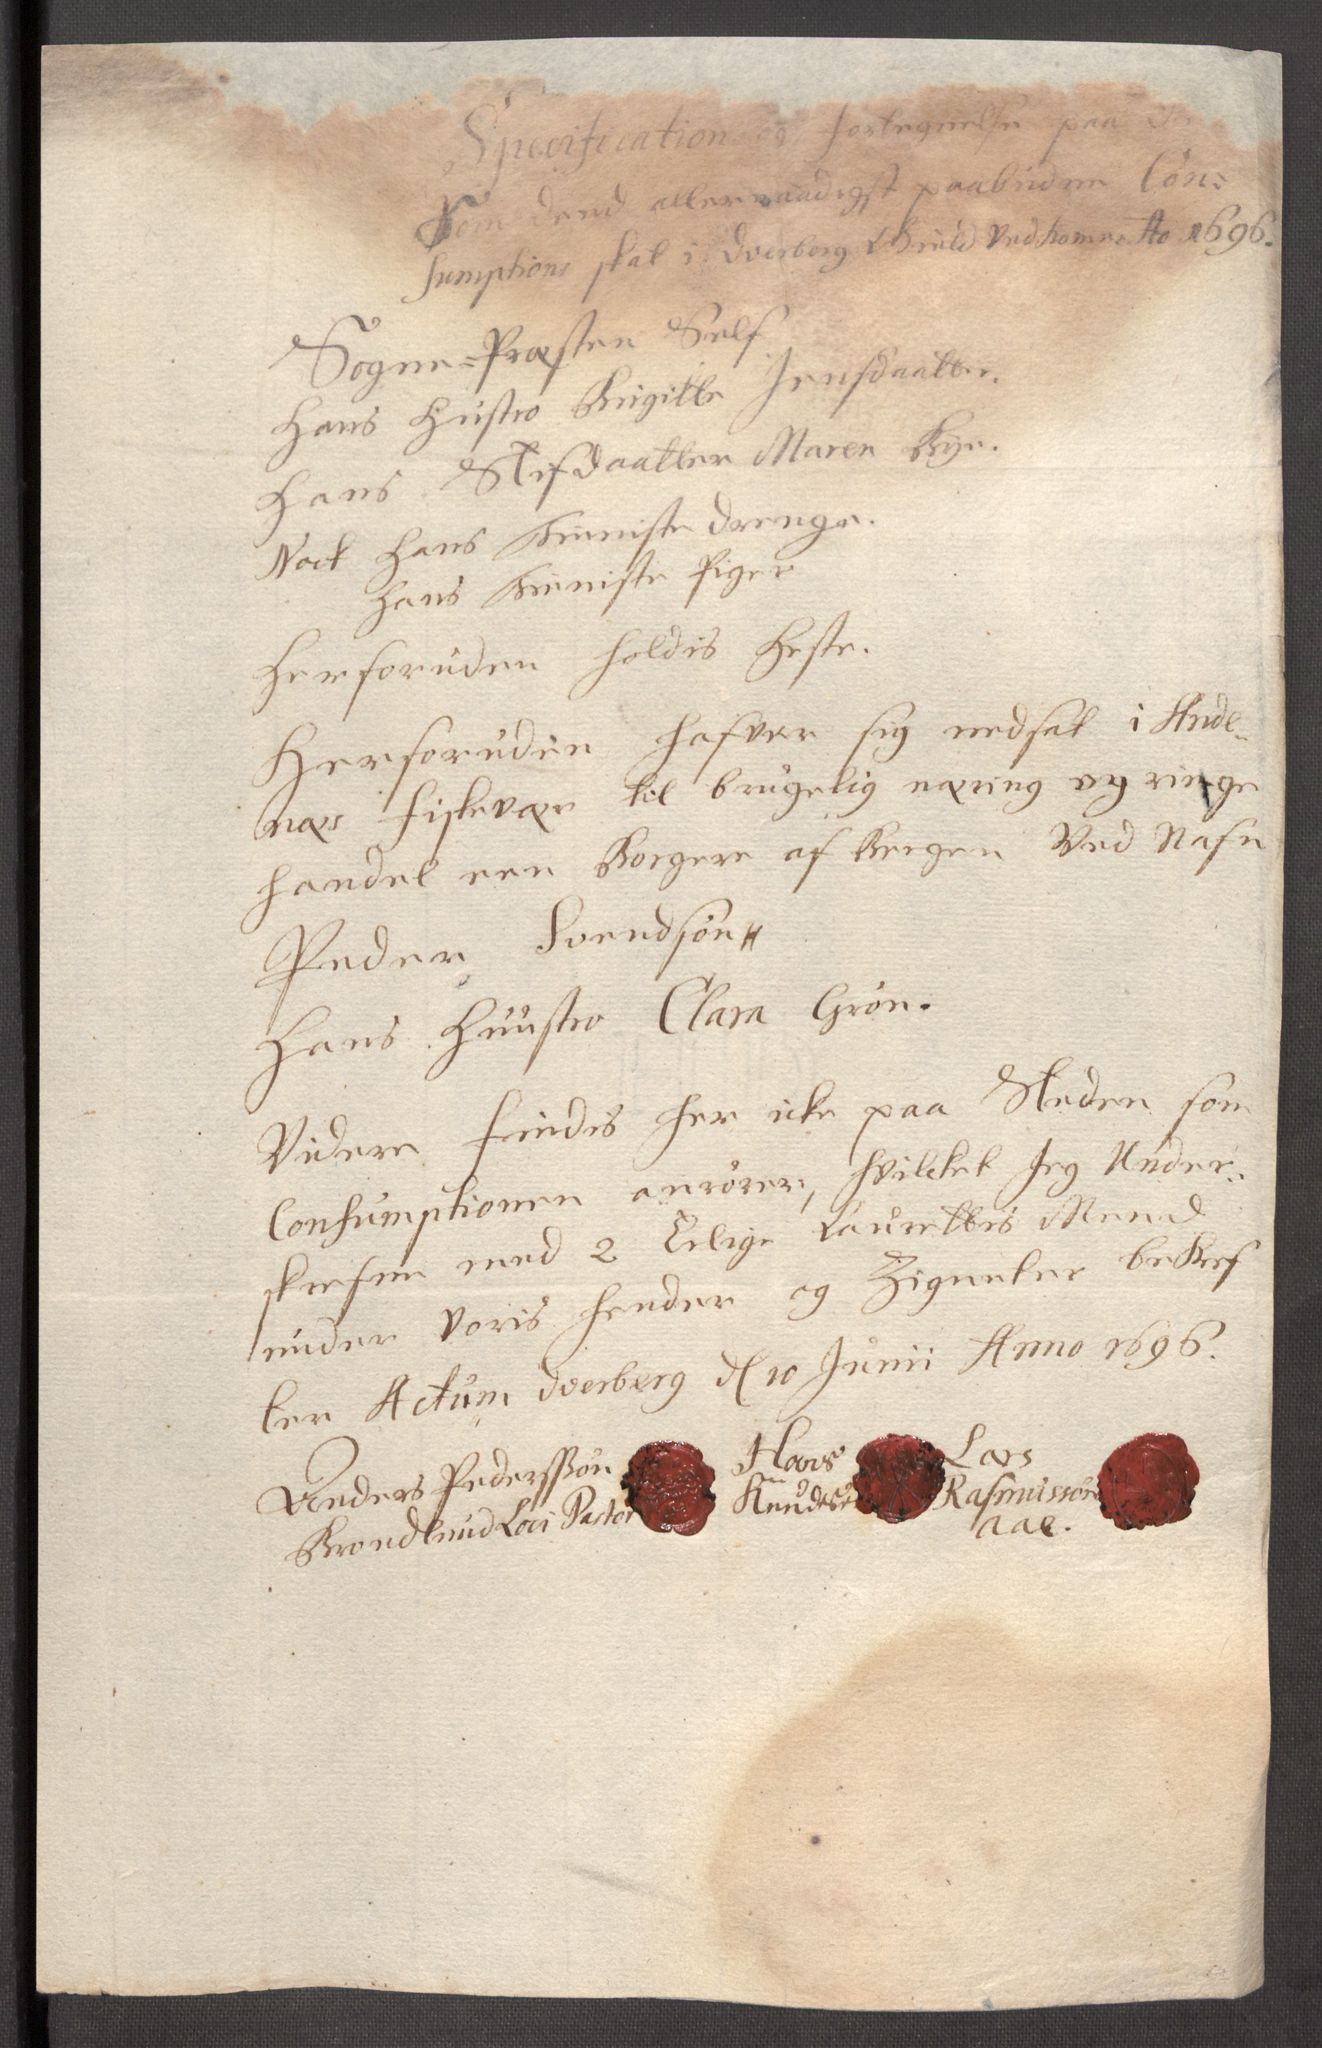 Specification og fortegnelse paa de
Som dend allernaadigst paabudne Con=
sumptions skat i Dverberg Gield Vedkommer Ao 1696.
Sogne=Præsten Self
Hans Hustro Birgitte Jensdaatter.
Hans Stifdaatter Maren Bÿe.
Nock Hans tienniste drenge.
Hans tienniste Piger
Herforuden holdis Heste.
Herforuden hafver sig nedsat i Andt=
næs fiskevær til brugelig næring og ringe
handel een Borgere af Bergen Ved Nafn
Peder Svendsøn
Hans Huustro Clara Grøn.
Videre findis her icke paa Steden som
Consumptionen anrører, hvilcket Jeg Under=
skrefne med 2 Eelige Laurettis Mænd
under voris hender og Zigneter bekref
ter Actum Dverberg d 10 Junii Anno 1696.
Anders Pederssøn Hans Lars
Brondlund Loci Pastor Knudsen Rasmussøn
aae.